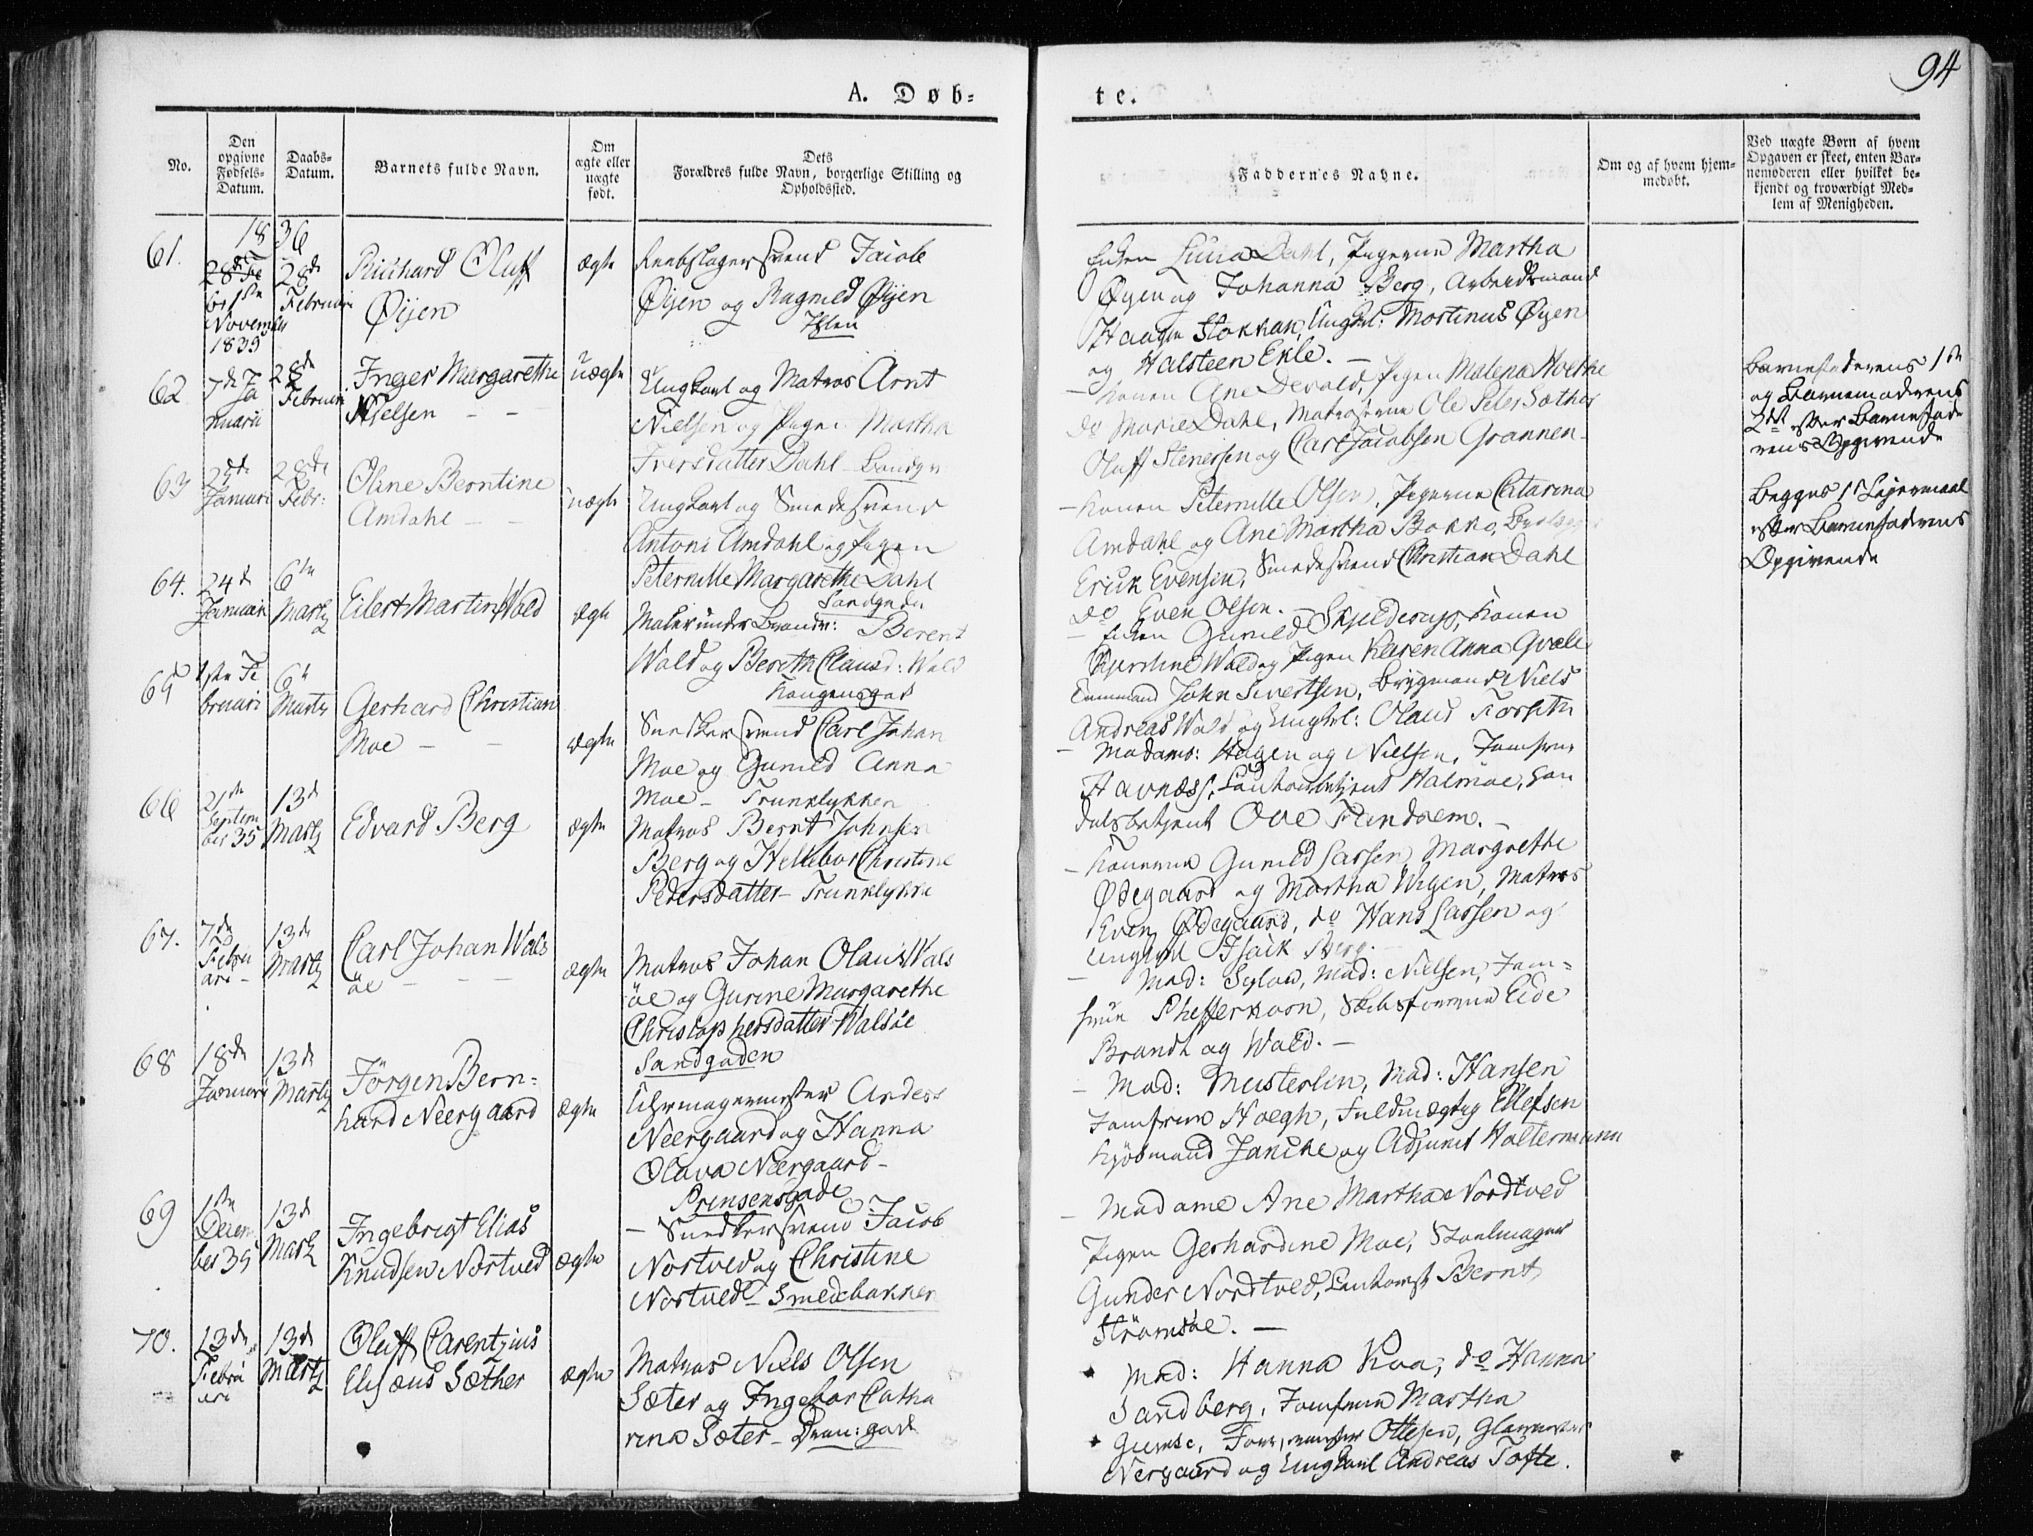 94
A. Døb-
te.
No.
Den opgivne Fødsels-Datum.
Daabs-Datum.
Barnets fulde Navn.
Om ægte eller uægte født.
Dets Forældres fulde Navn, borgerlige Stilling og Opholdssted.
Faddernes Navne.
Om og af hvem hjem-medøbt.
Ved uægte Børn af hvem Opgaven er skeet, enten Bar-nemoderen eller hvilket be-kjendt og troværdigt Med-lem af Menigheden.
1836
61.
November
1835
28de
Februari
Richard Oluff
Øyen
ægte
Reebslagersvend Jacob
Øyen og Ragnild Øyen
Ihlen
Enken Dahl, Pigerne Martha
Øyen og Johanna Berg, Arbeidsmand
Haagen Stokkan, Ungkl: Mortinus Øyen
og Halsteen Ekle. —
62
7de Ja
nuari
28de
Februari
Inger Margarethe
Nielsen — —
uægte
Ungkarl og Matros Arnt
Nielsen og Pigen Martha
Iversdatter Dahl
— Konen Ane Devold, Pigen Malena
do Marie Dahl, Matroserne Ole Peter Sæther
Oluff Stenersen og Carl Jacobsen Grannen
Barnefaderens 1ste
og Barnemoderens
2det efter Barnefade
rens Opgivende
63
Januari
28de
Febr:
Oline Berntine
Amdahl — —
uægte
Ungkarl og Smedesvend
Antoni Amdahl og Pigen
Peternille Margarethe Dahl
Sandgaden
— Konen Peternille Olsen, Pigerne Catarina
Amdahl og Ane Martha Bokko,
Erick Evensen, Smedesvend Christian Dahl
do Even Olsen. —
Begges 1ste Lejermaal
efter Barnefaderens
Opgivende
64.
24de
Januari
6te
Martz
Eilert Martin Wold
ægte
Berent
Wold og Bereth Clausd: Wold
Kongensgad
— Enken Gunild Skjelderup, Konen
Wold og Pigen Karen Anna Qvale
John Sivertsen, Brygmand Niels
Andreas Wold og Ungkl: Olaus
65
1ste Fe
bruari
6te
Martz
Gerhard Christian
Moe — —
ægte
Snedkersvend Carl Johan
Moe og Gunild Anna
Moe — Trunklykken
— Madams: Hagen og Nielsen, Jomfrue
Havnæss, Halmøe, Han
delsbetjent Ove
66
21de
Septem
ber 35
13de
Martz
Edvard Berg
ægte
Matros Bernt Johnsen
Berg og Hellebor Christine
Pedersdatter — Trunklykken
— Konerne Gunild Larsen, Margrethe
Ødegaard og Martha Wigen, Matros
Even Ødegaard, do Hans Larsen og
Ungkarl Isack Berg. —
67.
7de
Febru
ari —
13de
Martz
Carl Johan Wals
öe — — —
ægte
Matros Johan Olaus Wals
öe og Gurine Margarethe
Christophersdatter Walsöe
Sandgaden
— Mad: Sylow, Mad: Nielsen, Jom=
frue Pfefferkorn, Eide
Brandt og Wold. —
68
18de
Januari
13de
Martz
Jörgen Bern=
hard Neergaard
ægte
Uhrmagermester Anders
Neergaard og Hanna
Olava Neergaard —
Prinsensgade
— Mad: Musterlin, Mad: Hansen
Jomfrue Hoegh, Fuldmægtig Ellefsen
Kjöbmand Janche og Adjunct Holtermann
69
1ste
Decem
ber 35
13de
Martz
Ingebrigt Elias
Knudsen Nortved
ægte
— Snedkersvend Jacob
Nortved og Christine
Nortved — Smedebakken
— Madame Ane Martha Nordtved
Pigen Gerhardine Moe, Stoelmager
Gunder Nordtved, Bernt
Strömsöe. —
70.
13de
Febru
ari
13de
Martz
Oluff Carentzius
Elisæus Sæther
ægte
Matros Niels Olsen
Sæter og Ingebor Catha
rina Sæter — Dron: gad
Mad: Hanna Koa, do Hanna
Sandberg, Jomfrue Martha
Gumse, Ottesen, Glarmester
Nergaard og Ungkarl Andreas Tofte.